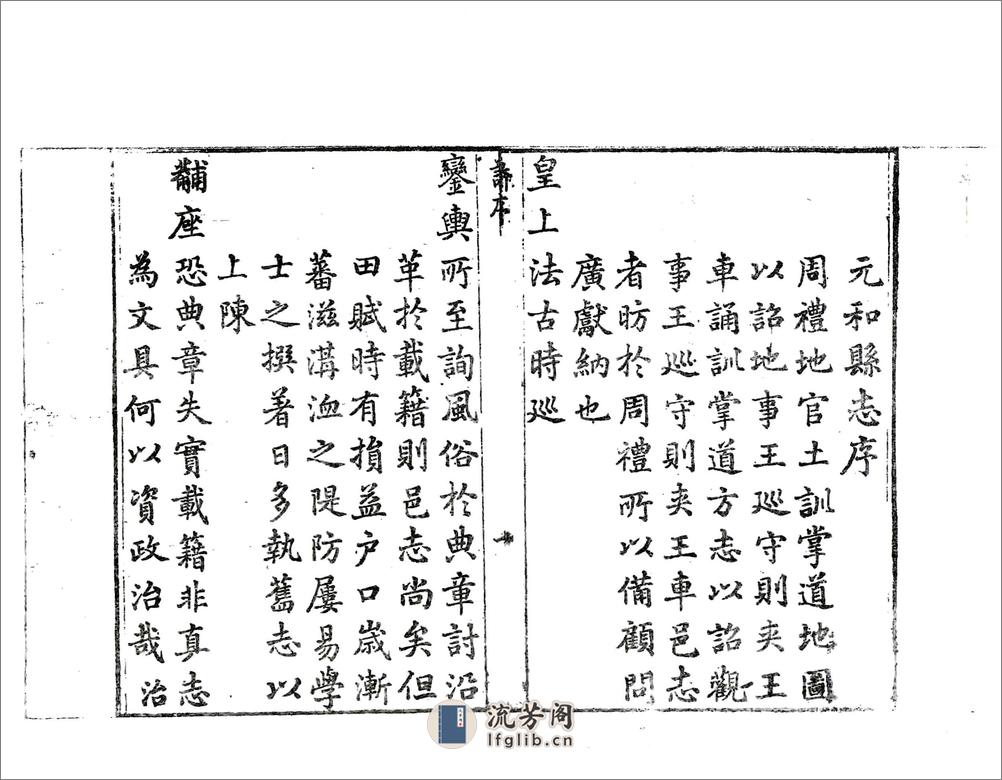 元和縣志序
周禮地官土訓掌道地圖
以詔地事王巡守則夾王
車誦訓掌道方志以詔觀
事王巡守則夾王車邑志
者昉於周禮所以備顧問
廣獻納也
皇上法古時巡
序
鑾輿所至詢風俗於典章討沿
革於載籍則邑志尚矣但
田賦時有損益户口歲漸
蕃滋溝洫之隄防屢易學
士之撰著日多執舊志以
上陳
黼座恐典章失實載籍非真志
為文具何以資政治哉治
流芳阁
lfglib.cn